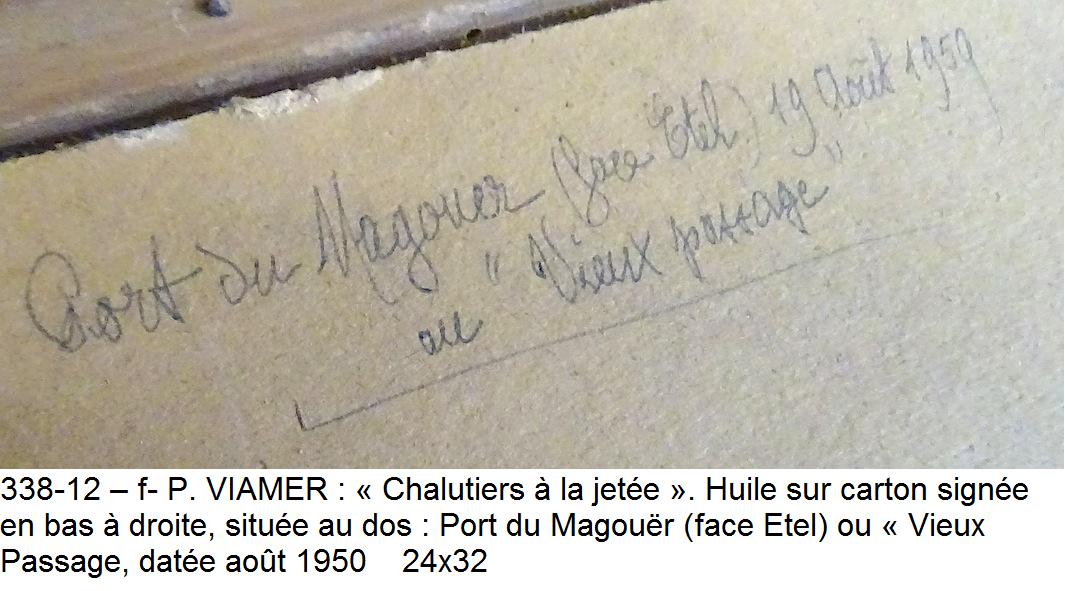 Port du Magouer (face Etel) 19 Août 1959
au " Vieux passage "
338-12 – f- P. VIAMER : « Chalutiers à la jetée ». Huile sur carton signée
en bas à droite, située au dos : Port du Magouër (face Etel) ou « Vieux
Passage, datée août 1950    24x32